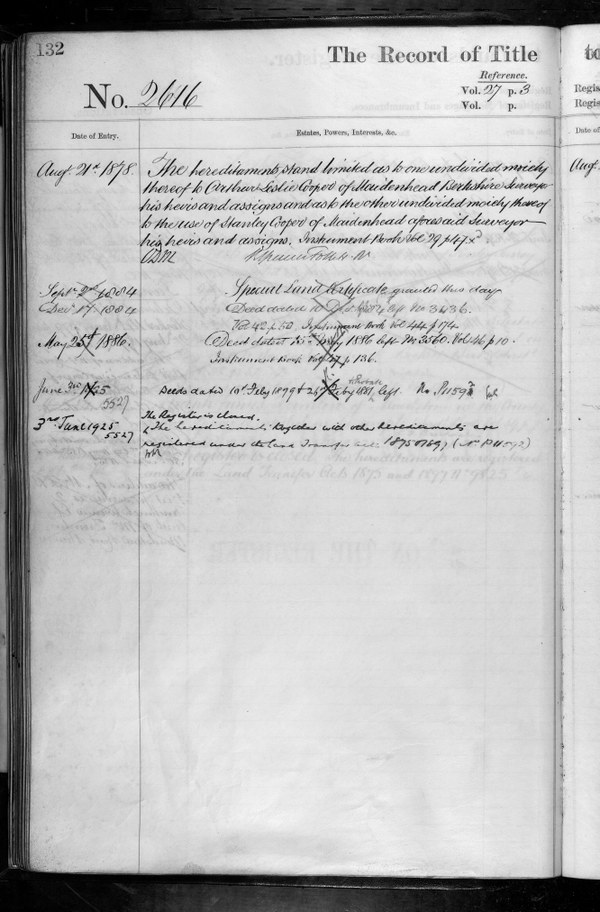 132
The Record of Title
Reference.
No. 2616
Vol. 27 p. 3
Vol. p.
Date of Entry.
Estates, Powers, Interests, &c.
Augt 21st 1878.
The hereditaments stand limited as to one undivided moiety
thereof to Arthur Leslie Cooper of Maidenhead Berkshire Surveyor
his heirs and assigns and as to the other undivided moiety thereof
to the use of Stanley Cooper of Maidenhead aforesaid Surveyor
his heirs and assigns. Instrument Book Vol. 29 p.
Septr 2nd 1884
Special Land Certificate granted this day
Decr 17 1884
Deed dated 10 left No 3436.
Vol 42 p 50. Instrument Book Vol 44 p 174
May 25th 1886.
Deed dated 15th 1886 left No 3560. Vol 46 p 10.
Instrument Book Vol 47 p 136.
June 3rd 1925
5527
Deeds dated 10th Feby 1899 & Feby 1881 left. No P11592
3rd June 1925
5527
The Register is closed.
The hereditaments together with other hereditaments are
registered under the Land Transfer Acts 1875 & 1897 (No P11592)
Regis
Regis
Date of
Aug.